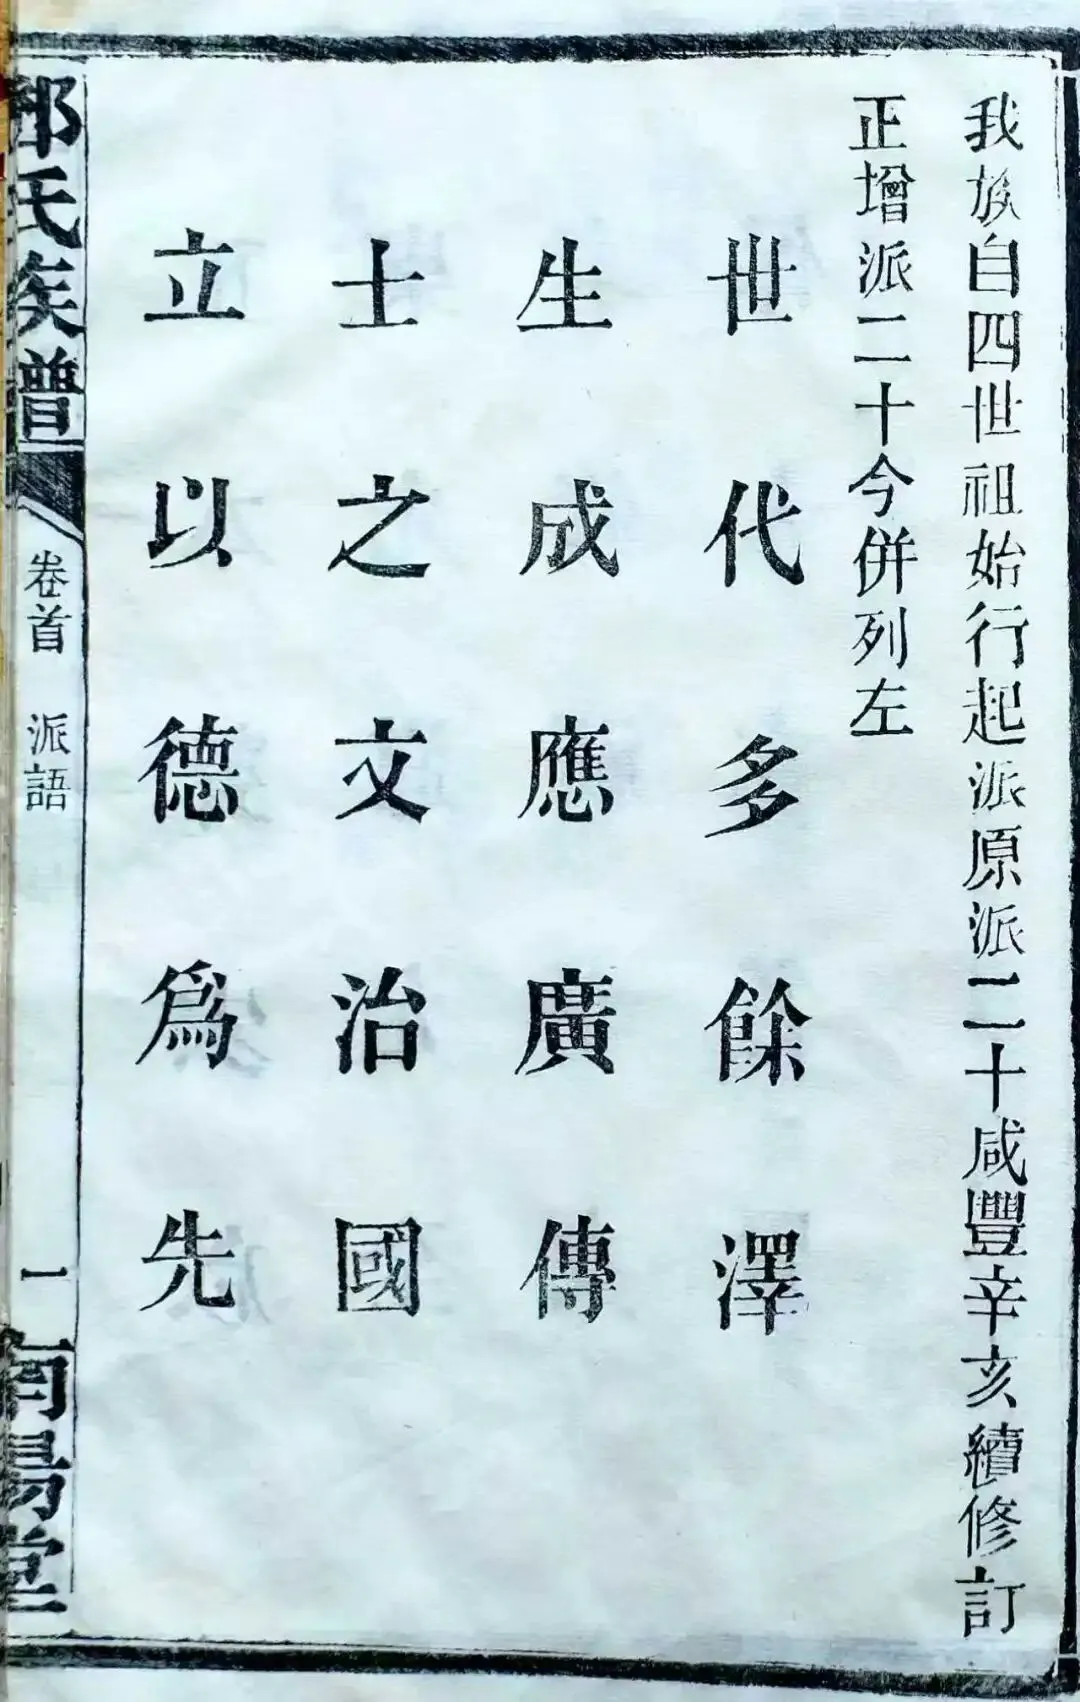 我族自四世祖始行起派原派二十咸豐辛亥續修訂
正增派二十今併列左
世代多餘澤
生成應廣傳
士之文治國
立以德爲先
氏族譜
卷首 派語
一
南陽堂